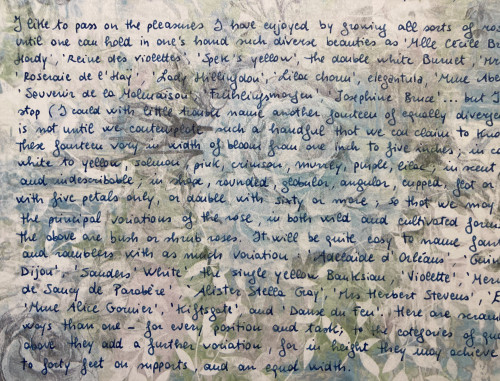 I like to pass on the pleasures I have enjoyed by growing all sorts of
until one can hold in one's hand such diverse beauties as 'Mlle Cécile
Hardy', 'Reine des Violettes', 'Spek's yellow', the double white Burnet,
'Roseraie de l'Hay', 'Lady Hillingdon', 'Lilac charm', elegantula, 'Mme
'Souvenir de la Malmaison', 'Frühlingsmorgen', 'Josephine Bruce'... but
stop (I could with little trouble name another fourteen of equally
is not until we contemplate such a handful that we can claim to
These fourteen vary in width of bloom from one inch to five inches; in
white to yellow, salmon, pink, crimson, murrey, purple, lilac; in scent
and indescribable; in shape, rounded, globular, angular, cupped, flat or
with five petals only, or double with sixty or more; so that we may
the principal variations of the rose in both wild and cultivated
the above are bush or shrub roses. It will be quite easy to name
and ramblers with as much variation: 'Adelaide d'Orléans'
Dijon', 'Sanders' White', the single yellow Banksian, 'Violette'
de Sancy de Parabère', 'Alister Stella Gray', 'Mrs Herbert Stevens',
'Mme Alice Garnier', 'Kiftsgate' and 'Danse du Feu'. Here are
ways than one - for every position and taste; to the categories of
above they add a further variation, for in height they may achieve
to forty feet on supports, and an equal width.